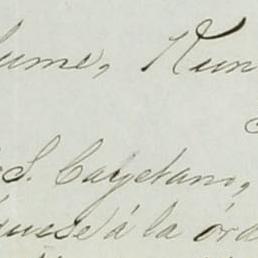 lume, Run
S. Cayetano,
quese á la órd